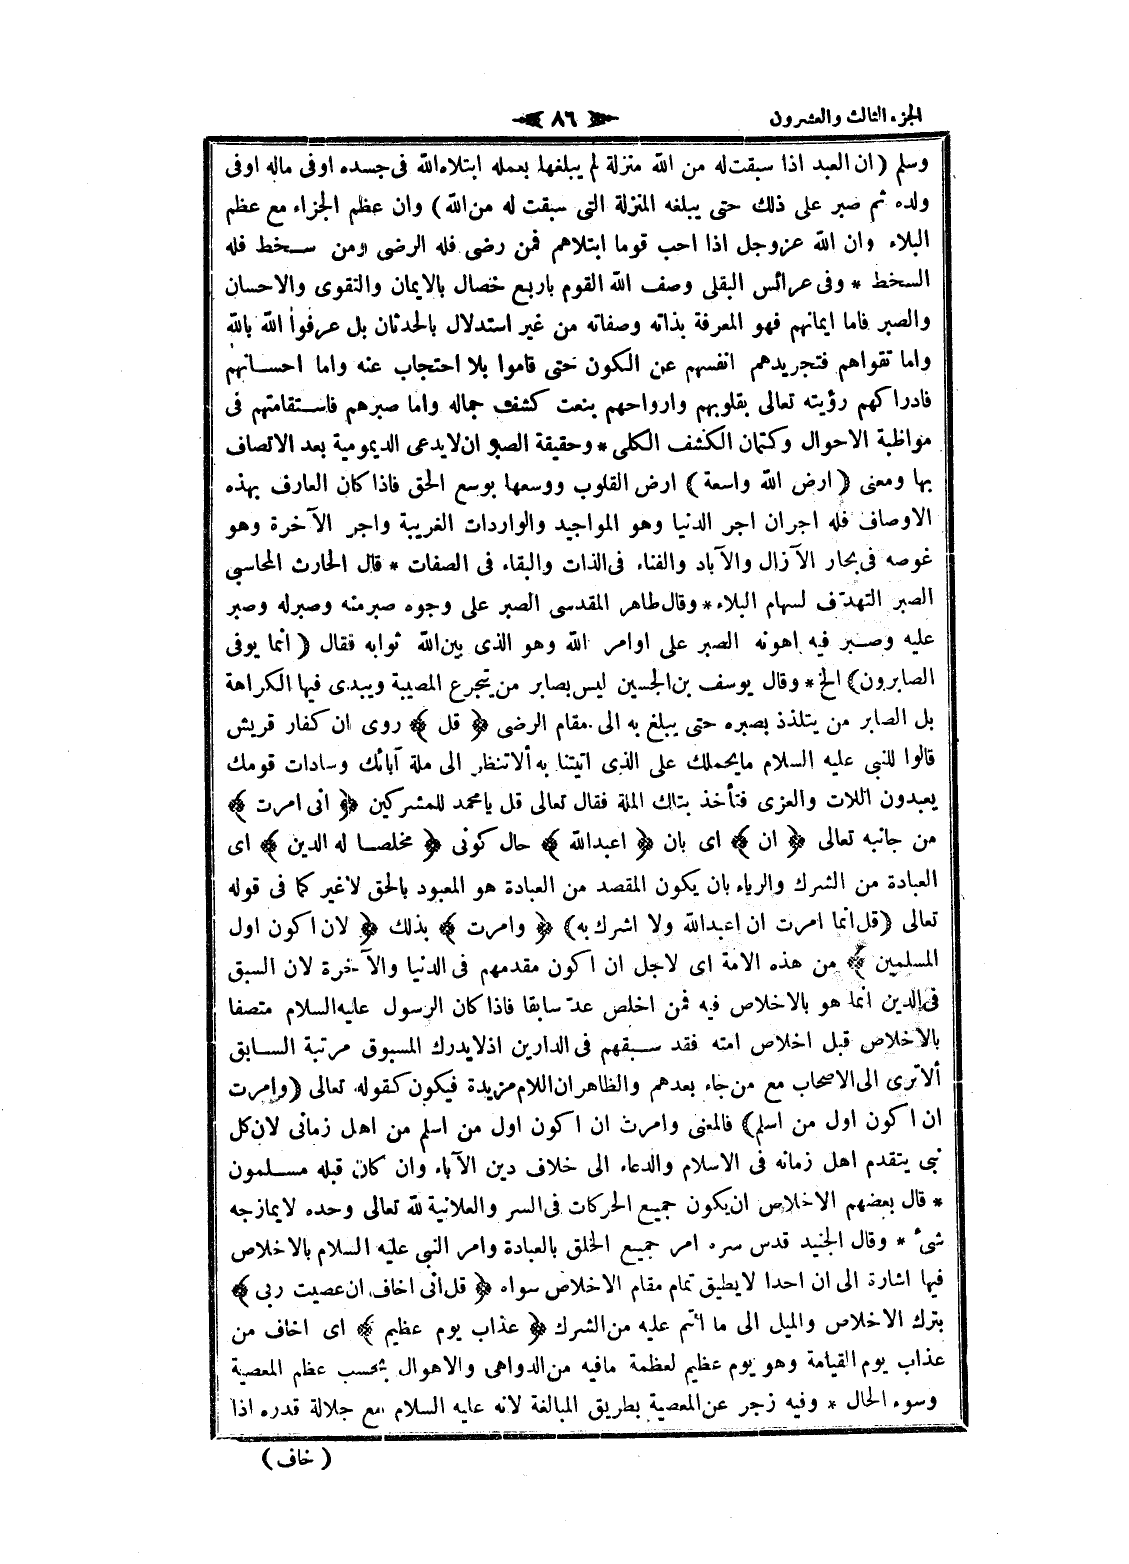 الجزء الثالث والعشرون
٨٦
وسلم (ان العبد اذا سبقت له من الله منزلة لم يبلغها بعمله ابتلاه الله فى جسده اوفى ماله اوفى
ولده ثم صبر على ذلك حتى يبلغه المنزلة التى سبقت له من الله) وان عظم الجزاء مع عظم
البلاء وان الله عزوجل اذا احب قوما ابتلاهم فمن رضى فله الرضى ومن سخط فله
السخط * وفى عرائس البقلى وصف الله القوم باربع خصال بالايمان والتقوى والاحسان
والصبر فاما ايمانهم فهو المعرفة بذاته وصفاته من غير استدلال بالحدثان بل عرفوا الله بالله
واما تقواهم فتجريدهم انفسهم عن الكون حتى قاموا بلا احتجاب عنه واما احسانهم
فادراكهم رؤيته تعالى بقلوبهم وارواحهم بنعت كشف جماله واما صبرهم فاستقامتهم فى
مواظبة الاحوال وكتمان الكشف الكلى * وحقيقة الصبر ان لايدعى الديمومية بعد الاتصاف
بها ومعنى (ارض الله واسعة) ارض القلوب ووسعها بوسع الحق فاذا كان العارف بهذه
الاوصاف فله اجران اجر الدنيا وهو المواجيد والواردات الغريبة واجر الآخرة وهو
غوصه فى بحار الآزال والآباد والفناء فى الذات والبقاء فى الصفات * قال الحارث المحاسبى
الصبر التهدّف لسهام البلاء * وقال طاهر المقدسى الصبر على وجوه صبر منه وصبر له وصبر
عليه وصبر فيه اهونه الصبر على اوامر الله وهو الذى بين الله ثوابه فقال (انما يوفى
الصابرون) الخ * وقال يوسف بن الحسين ليس بصابر من يتجرع المصيبة ويبدى فيها الكراهة
بل الصابر من يتلذذ بصبره حتى يبلغ به الى مقام الرضى ﴿ قل ﴾ روى ان كفار قريش
قالوا للنبى عليه السلام مايحملك على الذى اتيتنا به ألاتنظر الى ملة آبائك وسادات قومك
يعبدون اللات والعزى فتأخذ بتلك الملة فقال تعالى قل يامحمد للمشركين ﴿ انى امرت ﴾
من جانبه تعالى ﴿ ان ﴾ اى بان ﴿ اعبد الله ﴾ حال كونى ﴿ مخلصا له الدين ﴾ اى
العبادة من الشرك والرياء بان يكون المقصد من العبادة هو المعبود بالحق لاغير كما فى قوله
تعالى (قل انما امرت ان اعبد الله ولا اشرك به) ﴿ وامرت ﴾ بذلك ﴿ لان اكون اول
المسلمين ﴾ من هذه الامة اى لاجل ان اكون مقدمهم فى الدنيا والآخرة لان السبق
فى الدين انما هو بالاخلاص فيه فمن اخلص عدّ سابقا فاذا كان الرسول عليه السلام متصفا
بالاخلاص قبل اخلاص امته فقد سبقهم فى الدارين اذلايدرك المسبوق مرتبة السابق
ألاترى الى الاصحاب مع من جاء بعدهم والظاهر ان اللام مزيدة فيكون كقوله تعالى (وامرت
ان اكون اول من اسلم) فالمعنى وامرت ان اكون اول من اسلم من اهل زمانى لان كل
نبى يتقدم اهل زمانه فى الاسلام والدعاء الى خلاف دين الآباء وان كان قبله مسلمون
* قال بعضهم الاخلاص ان يكون جميع الحركات فى السر والعلانية لله تعالى وحده لايمازجه
شىء * وقال الجنيد قدس سره امر جميع الخلق بالعبادة وامر النبى عليه السلام بالاخلاص
فيها اشارة الى ان احدا لايطيق تمام مقام الاخلاص سواه ﴿ قل انى اخاف ان عصيت ربى ﴾
بترك الاخلاص والميل الى ما انتم عليه من الشرك ﴿ عذاب يوم عظيم ﴾ اى اخاف من
عذاب يوم القيامة وهو يوم عظيم لعظمة مافيه من الدواهى والاهوال بحسب عظم المعصية
وسوء الحال * وفيه زجر عن المعصية بطريق المبالغة لانه عليه السلام مع جلالة قدره اذا
(خاف)